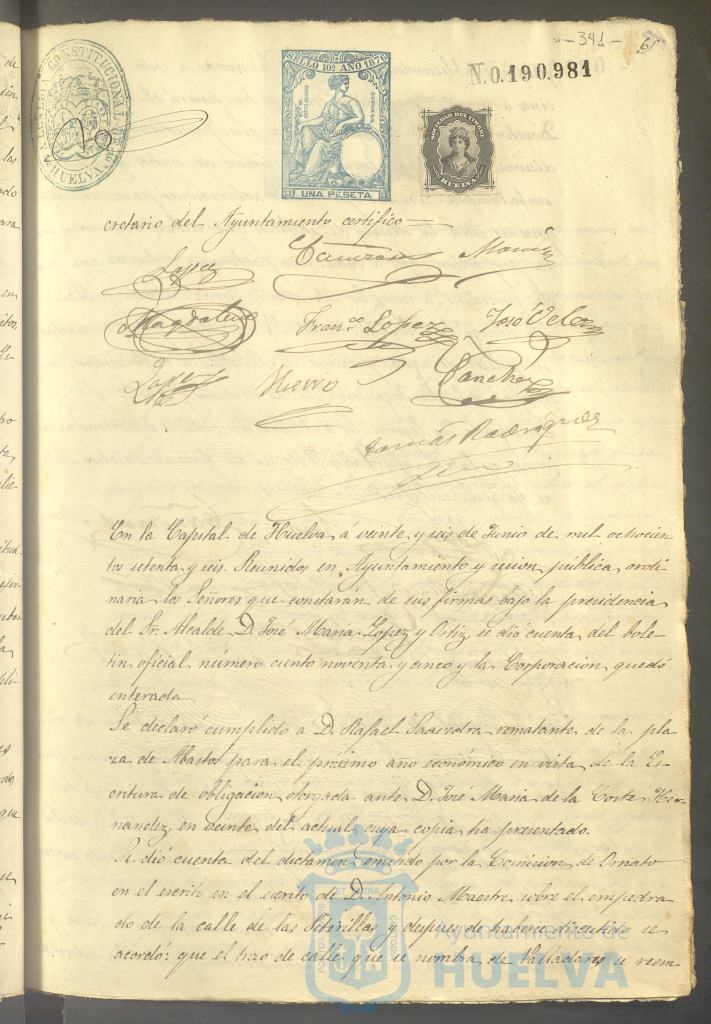 - 341 -
65
N.0.190,981
ALCALDIA CONSTITUCIONAL DE HUELVA
SELLO 10º AÑO 1876
UNA PESETA
SOCIEDAD DEL TIMBRE
HUELVA
cretario del Ayuntamiento certifico=
Lopez
Marin
Magdalena Fran.co Lopez José Velez
Lopez Hierro Sanchez
Tomás Rodriguez
En la Capital de Huelva á veinte y seis de Junio de mil ochocien
tos setenta y seis. Reunidos en Ayuntamiento y sesion pública ordi
naria los Señores que constarán de sus firmas bajo la presidencia
del Sr. Alcalde D. José Maria Lopez y Ortiz se dió cuenta del bole
tin oficial número ciento noventa y cinco y la Corporacion quedó
enterada
Se declaró cumplido á D. Rafael Saavedra rematante de la pla
za de Abastos para el próximo año económico en vista de la Es
critura de obligacion otorgada ante D. José Maria de la Corte Her
nandez, en veinte del actual, cuya copia ha presentado.
Se dió cuenta del dictamen emitido por la Comision de Ornato
en el escrito en el escrito de D. Antonio Maestre sobre el empedra
do de la calle de las y despues de haberse discutido se
acordó: que el trozo de calle que se nombra de Valladares se reem
Ayuntamiento de
HUELVA